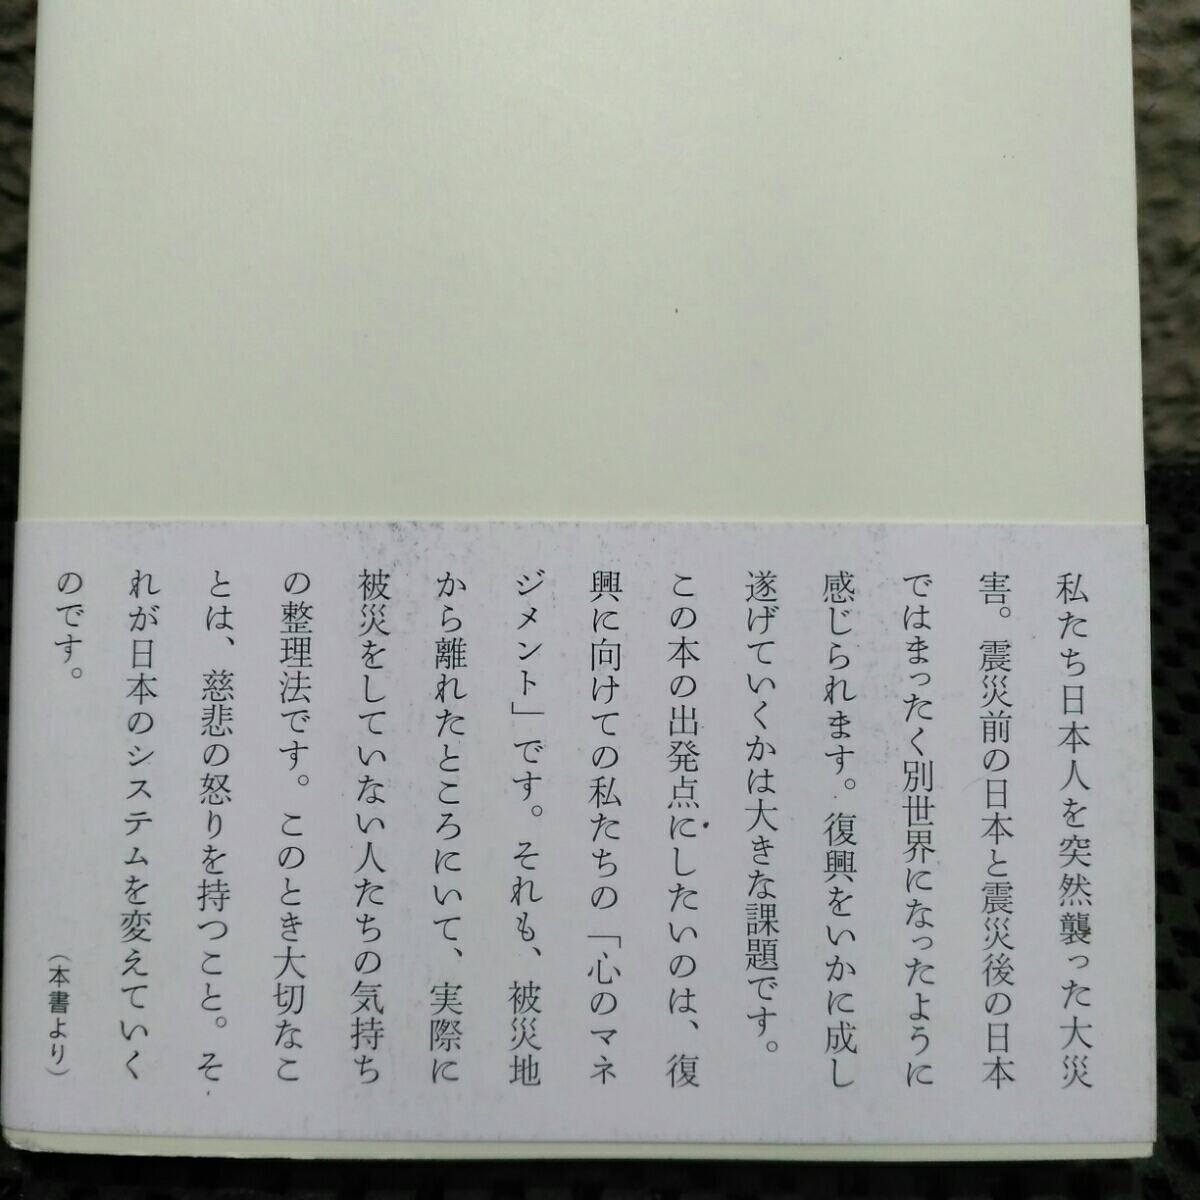 私たち日本人を突然襲った大災
害。震災前の日本と震災後の日本
ではまったく別世界になったように
感じられます。復興をいかに成し
遂げていくかは大きな課題です。
この本の出発点にしたいのは、復
興に向けての私たちの「心のマネ
ジメント」です。それも、被災地
から離れたところにいて、実際に
被災をしていない人たちの気持ち
の整理法です。このとき大切なこ
とは、慈悲の怒りを持つこと。そ
れが日本のシステムを変えていく
のです。
（本書より）